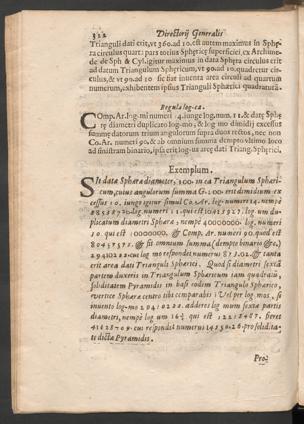 322 Directorij Generalis
Trianguli dati erit, vt 360. ad 10. est autem maximus in Sphę-
ra circulus quarta pars totius Sphęricę superficiei, ex Archime-
de de Sph & Cyl. igitur maximus in data Sphęra circulus erit
ad datum Triangulum Sphęricum, vt 90. ad 10. quadretur cir-
culus, & vt 90. ad 10 fiet intenta area circuli ad quartum
numerum, exhibentem ipsius Trianguli Sphęrici quadraturā.
Regula log-ca.
Comp. Ar. log-mi numeri 14. iunge log. num. 11. & datę Sphę
rę diametri duplicato log-mo, & log-mo dimidij excessus
summę datorum trium angulorum supra duos rectos, nec non
Co. Ar. numeri 90. & ab omnium summa dempto vltimo loco
ad sinistram binario, ipsa erit log-us areę dati Triang. Sphęrici.
Exemplum.
Sit data Sphæræ diameter, 100. in ea Triangulum Sphæri-
cum, cuius angulorum summa G. 200 erit dimidium ex
cessus 10. iungo igitur simul Co. Ar. log. numeri 14. nempè
log. numeri 11. qui est log. num du-
plicatum diametri Sphæræ, nempè 40000000. log. numeri
10. qui est 10000000. & Comp. Ar. numeri 90. quod est
80457575. & fit omnium summa (dempto binario &c.)
29410222. cui log-mo respondet numerus 873.02. & tanta
erit area dati Trianguli Sphærici. Quod si diametri sextā
partem duxeris in Triangulum Sphæricum iam quadratū,
soliditatem Pyramidis in basi eodem Triangulo Sphærico,
vertice Sphæræ centro tibi comparabis; Vel per log-mos, si
inuento log-mo 29410222. adderes log-mum sextæ partis
diametri, nempè log-um 16⅔ qui est 12218487. fieret
41628709. cui respondet numerus 14550.26. pro solidita-
te dictæ Pyramidis.
Pro-